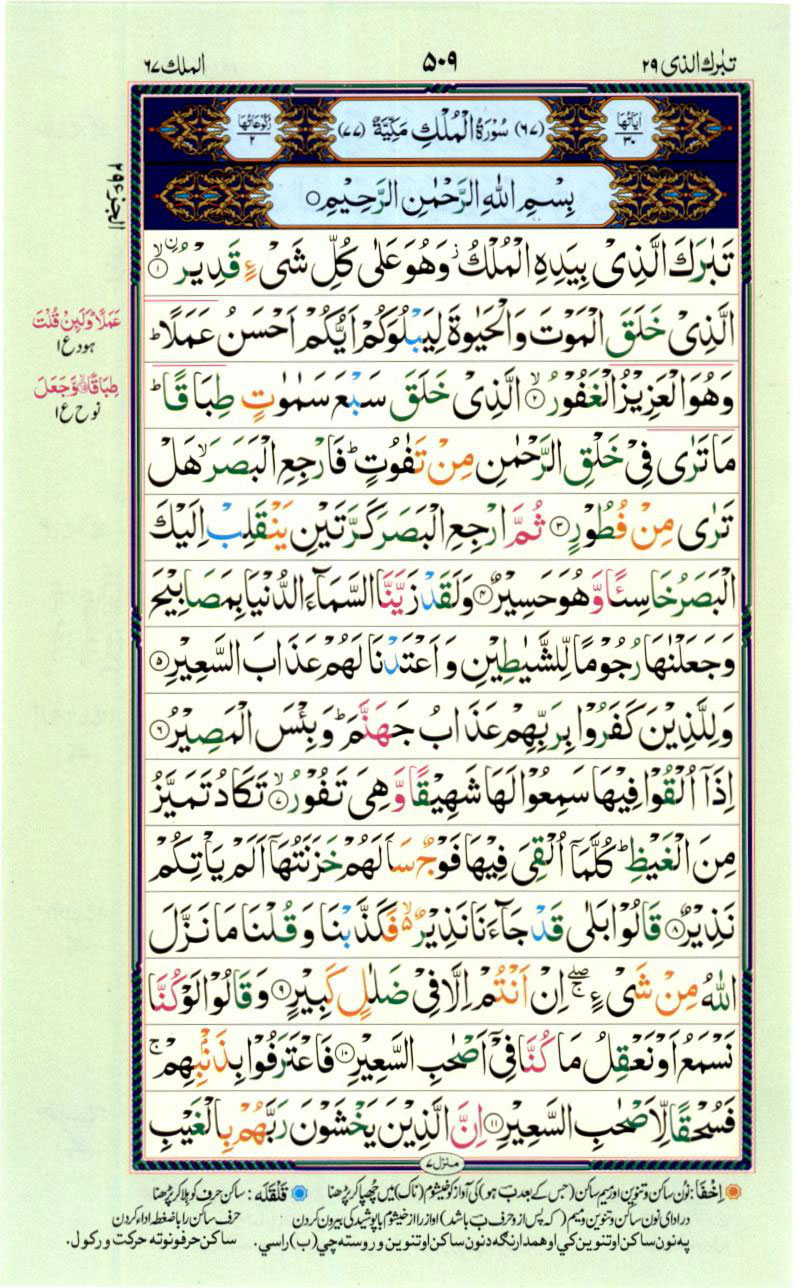 تبٰرك الذی ۲۹
۵۰۹
الملك ۶۷
اٰیَاتُهَا ۳۰
(۶۷) سُوْرَةُ الْمُلْكِ مَكِّیَّةٌ (۷۷)
رُكُوْعَاتُهَا ۲
بِسْمِ اللهِ الرَّحْمٰنِ الرَّحِیْمِ
تَبٰرَكَ الَّذِیْ بِیَدِهِ الْمُلْكُ ز وَهُوَ عَلٰى كُلِّ شَیْءٍ قَدِیْرُ ۙ ۱
الَّذِیْ خَلَقَ الْمَوْتَ وَالْحَیٰوةَ لِیَبْلُوَكُمْ اَیُّكُمْ اَحْسَنُ عَمَلًا ؕ
وَهُوَ الْعَزِیْزُ الْغَفُوْرُ ۙ ۲ الَّذِیْ خَلَقَ سَبْعَ سَمٰوٰتٍ طِبَاقًا ؕ
مَا تَرٰى فِیْ خَلْقِ الرَّحْمٰنِ مِنْ تَفٰوُتٍ ؕ فَارْجِعِ الْبَصَرَ ۙ هَلْ
تَرٰى مِنْ فُطُوْرٍ ۳ ثُمَّ ارْجِعِ الْبَصَرَ كَرَّتَیْنِ یَنْقَلِبْ اِلَیْكَ
الْبَصَرُ خَاسِئًا وَّ هُوَ حَسِیْرٌ ۴ وَلَقَدْ زَیَّنَّا السَّمَآءَ الدُّنْیَا بِمَصَابِیْحَ
وَجَعَلْنٰهَا رُجُوْمًا لِّلشَّیٰطِیْنِ وَ اَعْتَدْنَا لَهُمْ عَذَابَ السَّعِیْرِ ۵
وَلِلَّذِیْنَ كَفَرُوْا بِرَبِّهِمْ عَذَابُ جَهَنَّمَ ؕ وَبِئْسَ الْمَصِیْرُ ۶
اِذَاۤ اُلْقُوْا فِیْهَا سَمِعُوْا لَهَا شَهِیْقًا وَّ هِیَ تَفُوْرُ ۙ ۷ تَكَادُ تَمَیَّزُ
مِنَ الْغَیْظِ ؕ كُلَّمَاۤ اُلْقِیَ فِیْهَا فَوْجٌ سَاَلَهُمْ خَزَنَتُهَاۤ اَلَمْ یَاْتِكُمْ
نَذِیْرٌ ۸ قَالُوْا بَلٰى قَدْ جَآءَنَا نَذِیْرٌ ۙ۵ فَكَذَّبْنَا وَ قُلْنَا مَا نَزَّلَ
اللهُ مِنْ شَیْءٍ ۚۖ اِنْ اَنْتُمْ اِلَّا فِیْ ضَلٰلٍ كَبِیْرٍ ۹ وَ قَالُوْا لَوْ كُنَّا
نَسْمَعُ اَوْ نَعْقِلُ مَا كُنَّا فِیْۤ اَصْحٰبِ السَّعِیْرِ ۱۰ فَاعْتَرَفُوْا بِذَنْۢبِهِمْ ۚ
فَسُحْقًا لِّاَصْحٰبِ السَّعِیْرِ ۱۱ اِنَّ الَّذِیْنَ یَخْشَوْنَ رَبَّهُمْ بِالْغَیْبِ
منزل ۷
الجزء ۲۹
عَمَلًا ؕ وَلَىِٕنْ قُلْتَ
هود ع ۱
طِبَاقًا ۙ وَّ جَعَلَ
نوح ع ۱
اِخْفَا: نون ساکن و تنوین اور میم ساکن (جس کے بعد ب ہو) کی آواز کو خیشوم (ناک) میں چھپا کر پڑھنا
قَلْقَلَه: ساکن حرف کو ہلا کر پڑھنا
در ادای نون ساکن و تنوین و میم (که پس از و حرف ب باشد) اواز را از خیشوم با پوشیدگی بیرون کردن
حرف ساکن را با ضغطه اداء کردن
په نون ساکن او تنوین کي او همدارنګه د نون ساکن او تنوین وروسته چي (ب) راسي.
ساکن حرفونو ته حرکت ورکول.